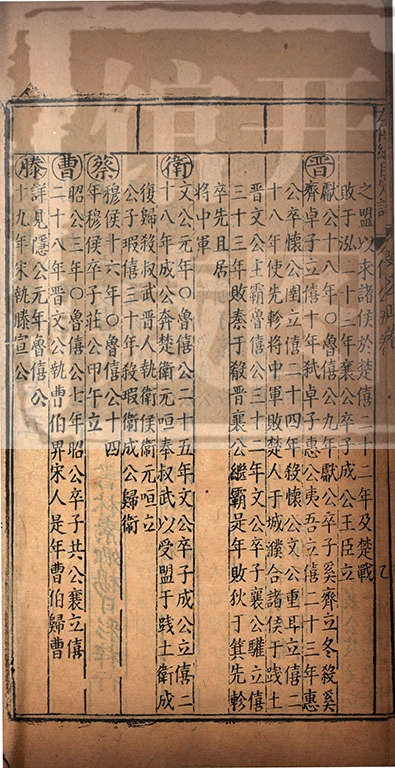 之盟以求諸侯於楚僖二十二年及楚戰
敗于泓二十三年襄公卒子成公王臣立
晉
獻公十八年○魯僖公九年獻公卒子奚齊立冬殺奚
齊卓子立僖十年弒卓子惠公夷吾立僖二十三年惠
公卒懷公圉立僖二十四年殺懷公文公重耳立僖二
十八年使先軫將中軍敗楚人于城濮合諸侯于踐土
晉文公主霸魯僖公三十二年文公卒子襄公驩立僖
三十三年敗秦于殽晉襄公繼霸是年敗狄于箕先軫
卒先且居
將中軍
衛
文公元年○魯僖公二十五年文公卒子成公立僖二
十八年成公奔楚衛元咺奉叔武以受盟于踐土衛成
復歸殺叔武晉人執衛侯衛元咺立
公子瑕僖三十年殺瑕衛成公歸衛
蔡
穆侯十六年○魯僖公十四
年穆侯卒子莊公甲午立
曹
昭公三年○魯僖公七年昭公卒子共公襄立僖
二十八年晉文公執曹伯畀宋人是年曹伯歸曹
滕
詳見隱公元年魯僖公
十九年宋執滕宣公